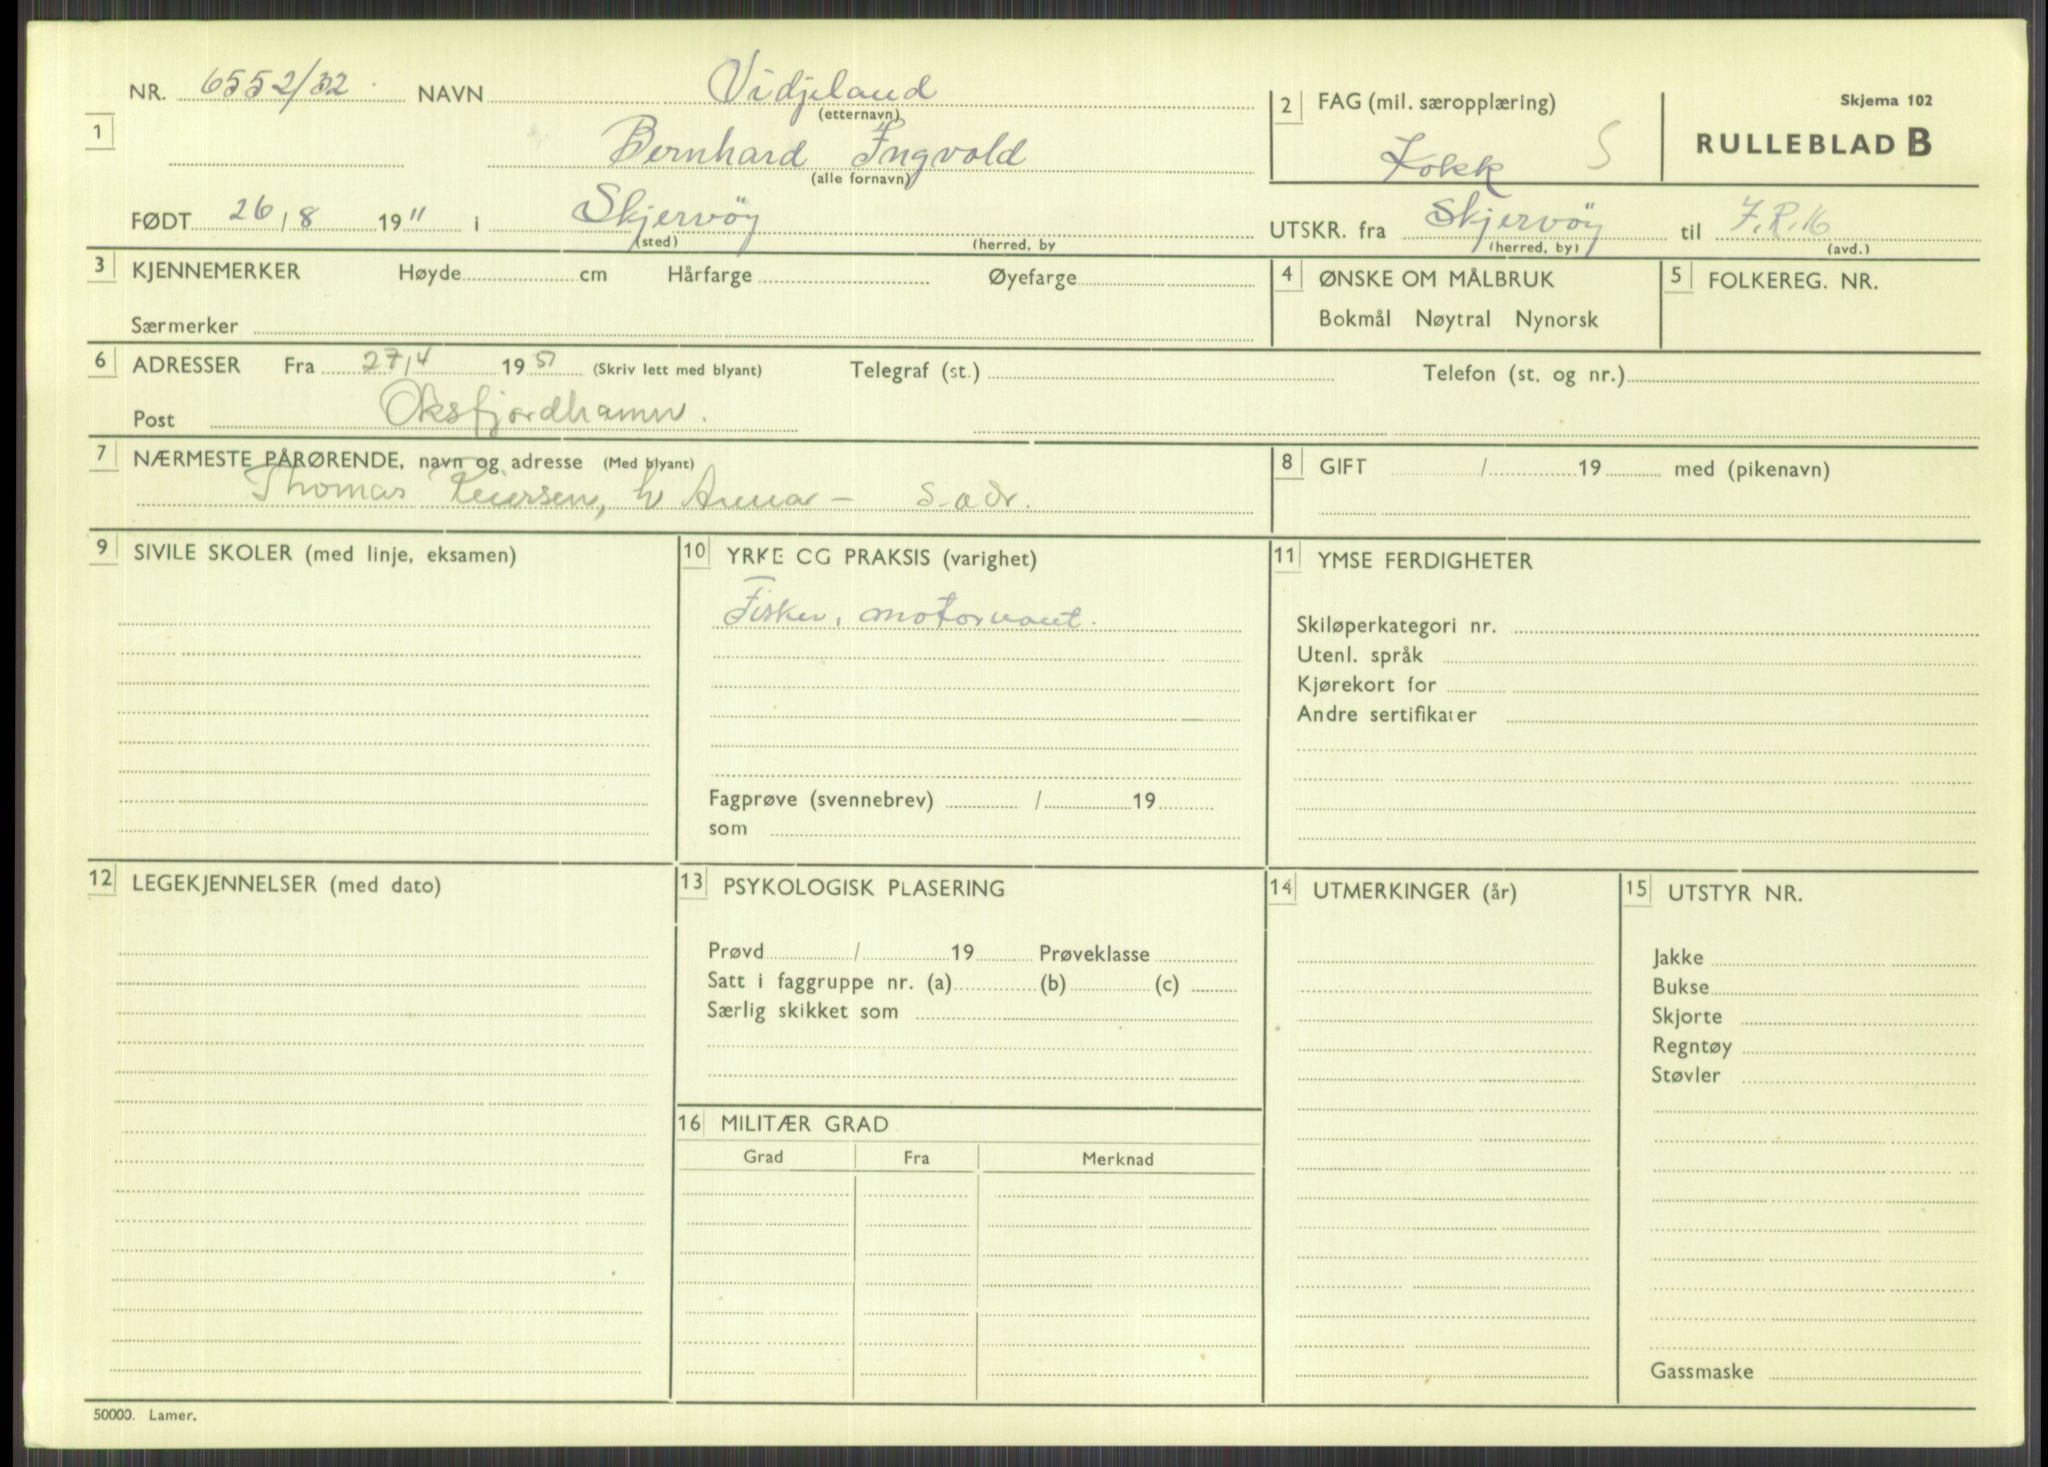 Skjema 102
RULLEBLAD B
1 NR. 6552/32 NAVN Vidjeland
(etternavn)
Bernhard Ingvold
(alle fornavn)
FØDT 26/8 1911 i Skjervöy
(sted) (herred, by
2 FAG (mil. særopplæring)
Kokk S
UTSKR. fra Skjervöy til I.R.16
(herred, by) (avd.)
3 KJENNEMERKER Høyde cm Hårfarge Øyefarge
Særmerker
4 ØNSKE OM MÅLBRUK
Bokmål Nøytral Nynorsk
5 FOLKEREG. NR.
6 ADRESSER Fra 27/4 1951 (Skriv lett med blyant) Telegraf (st.) Telefon (st. og nr.)
Post Oksfjordhamn.
7 NÆRMESTE PÅRØRENDE, navn og adresse (Med blyant)
Thomas h Anna – s. adr.
8 GIFT / 19 med (pikenavn)
9 SIVILE SKOLER (med linje, eksamen)
10 YRKE CG PRAKSIS (varighet)
Fisker, motorvant.
Fagprøve (svennebrev) / 19
som
11 YMSE FERDIGHETER
Skiløperkategori nr.
Utenl. språk
Kjørekort for
Andre sertifikater
12 LEGEKJENNELSER (med dato)
13 PSYKOLOGISK PLASERING
Prøvd / 19 Prøveklasse
Satt i faggruppe nr. (a) (b) (c)
Særlig skikket som
14 UTMERKINGER (år)
15 UTSTYR NR.
Jakke
Bukse
Skjorte
Regntøy
Støvler
Gassmaske
16 MILITÆR GRAD
Grad Fra Merknad
50000. Lamer.